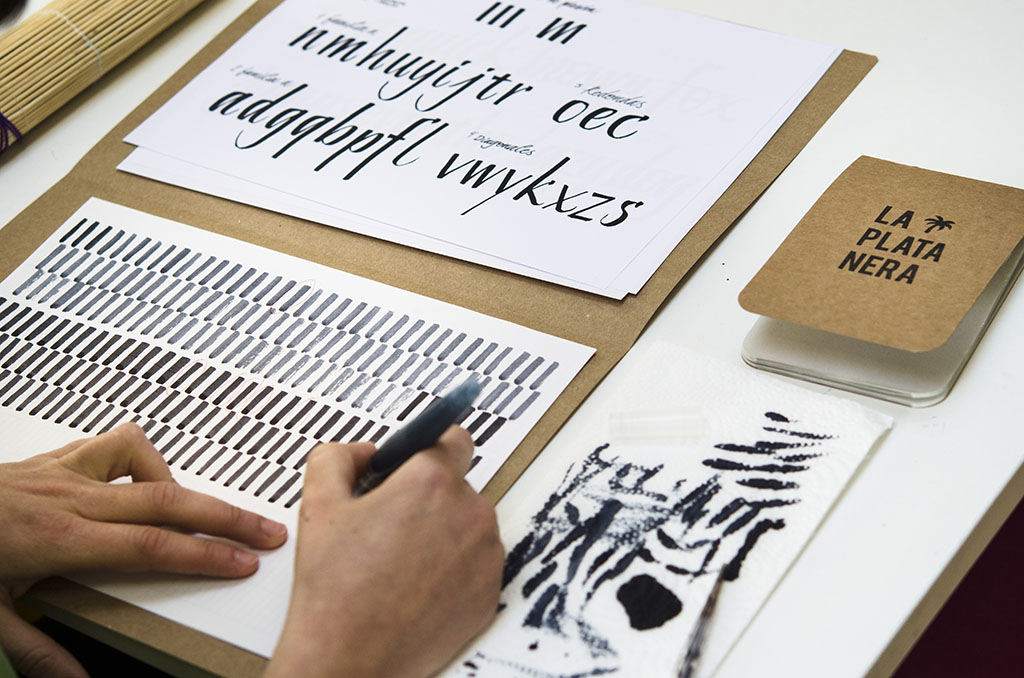 lll m
1 familia n
nmhuyijtr
3 Redondas
oec
2 familia a
adgqbpfl
4 Diagonales
vwykxzs
LA
PLATA
NERA